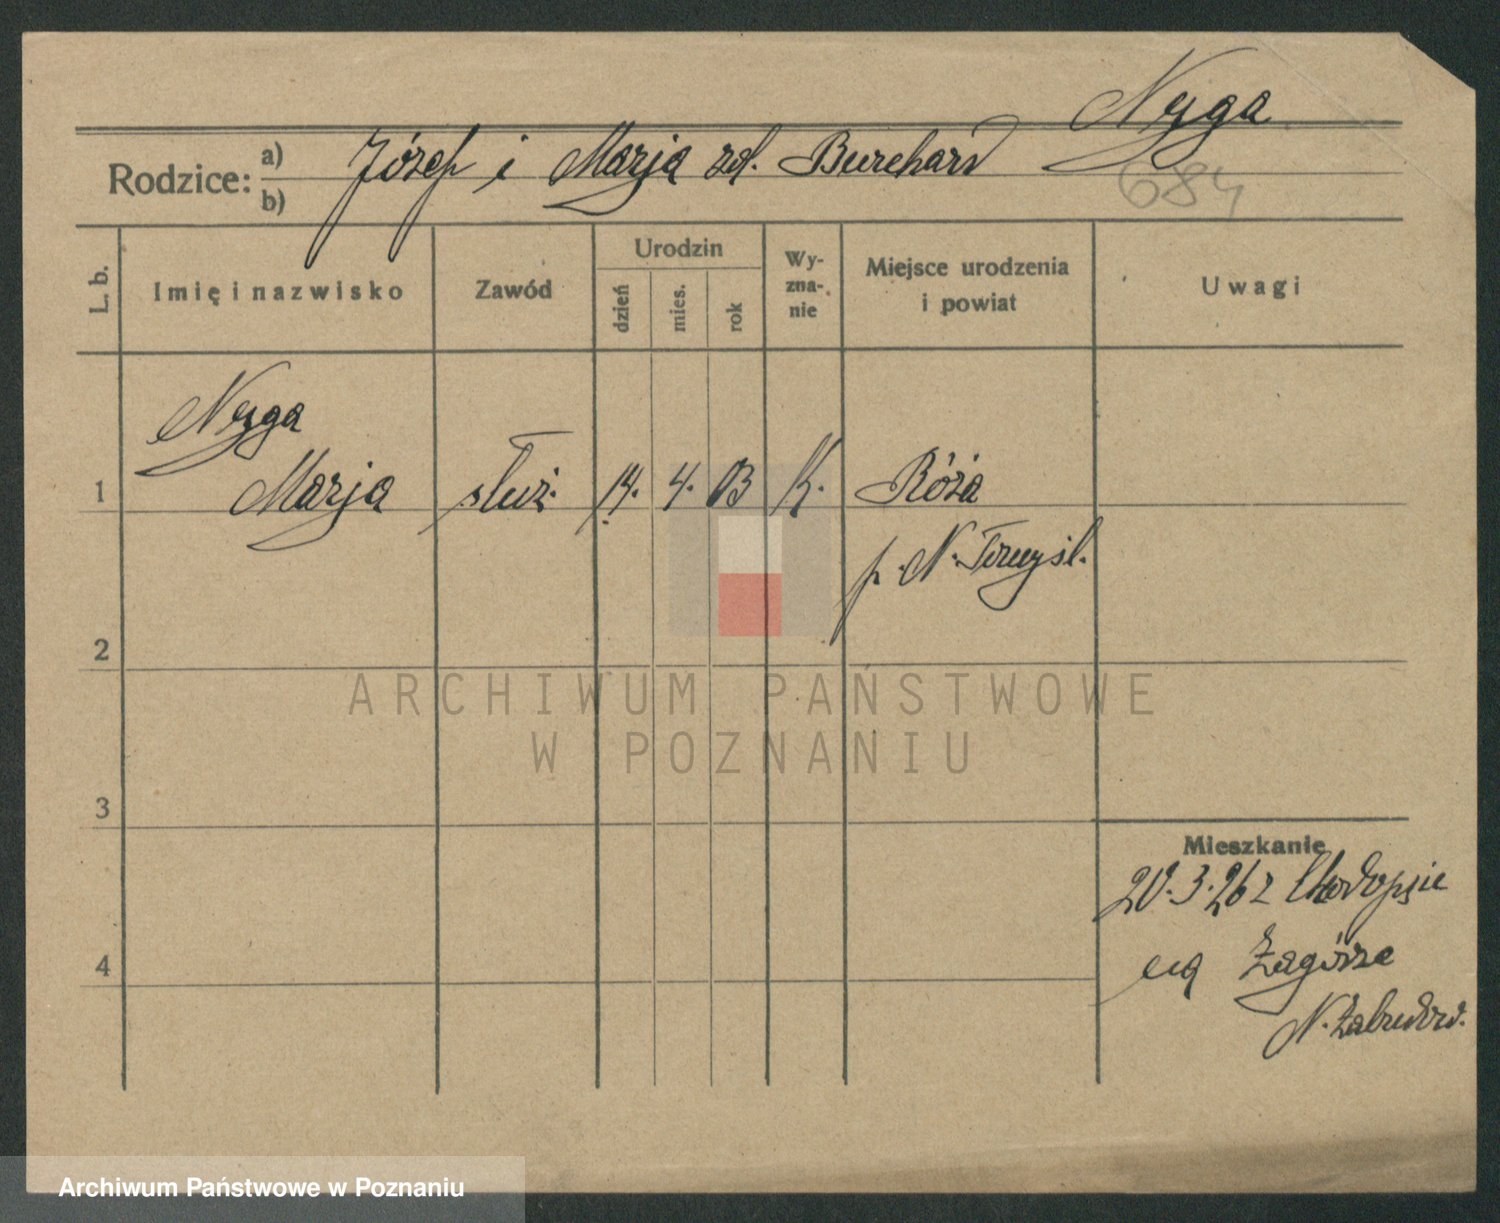 Nyga
Rodzice: a) b) Józef i Marja zd. Burchard
684
L. b.
Imię i nazwisko
Zawód
Urodzin
dzień
mies.
rok
Wy-
zna-
nie
Miejsce urodzenia
i powiat
Uwagi
Nyga
1 Marja służ. 14. 4. 03 K. Róża
p. N. Tomyśl.
2
ARCHIWUM PAŃSTWOWE
W POZNANIU
3
Mieszkanie
20.3.26 z
4
Zagórze
Archiwum Państwowe w Poznaniu